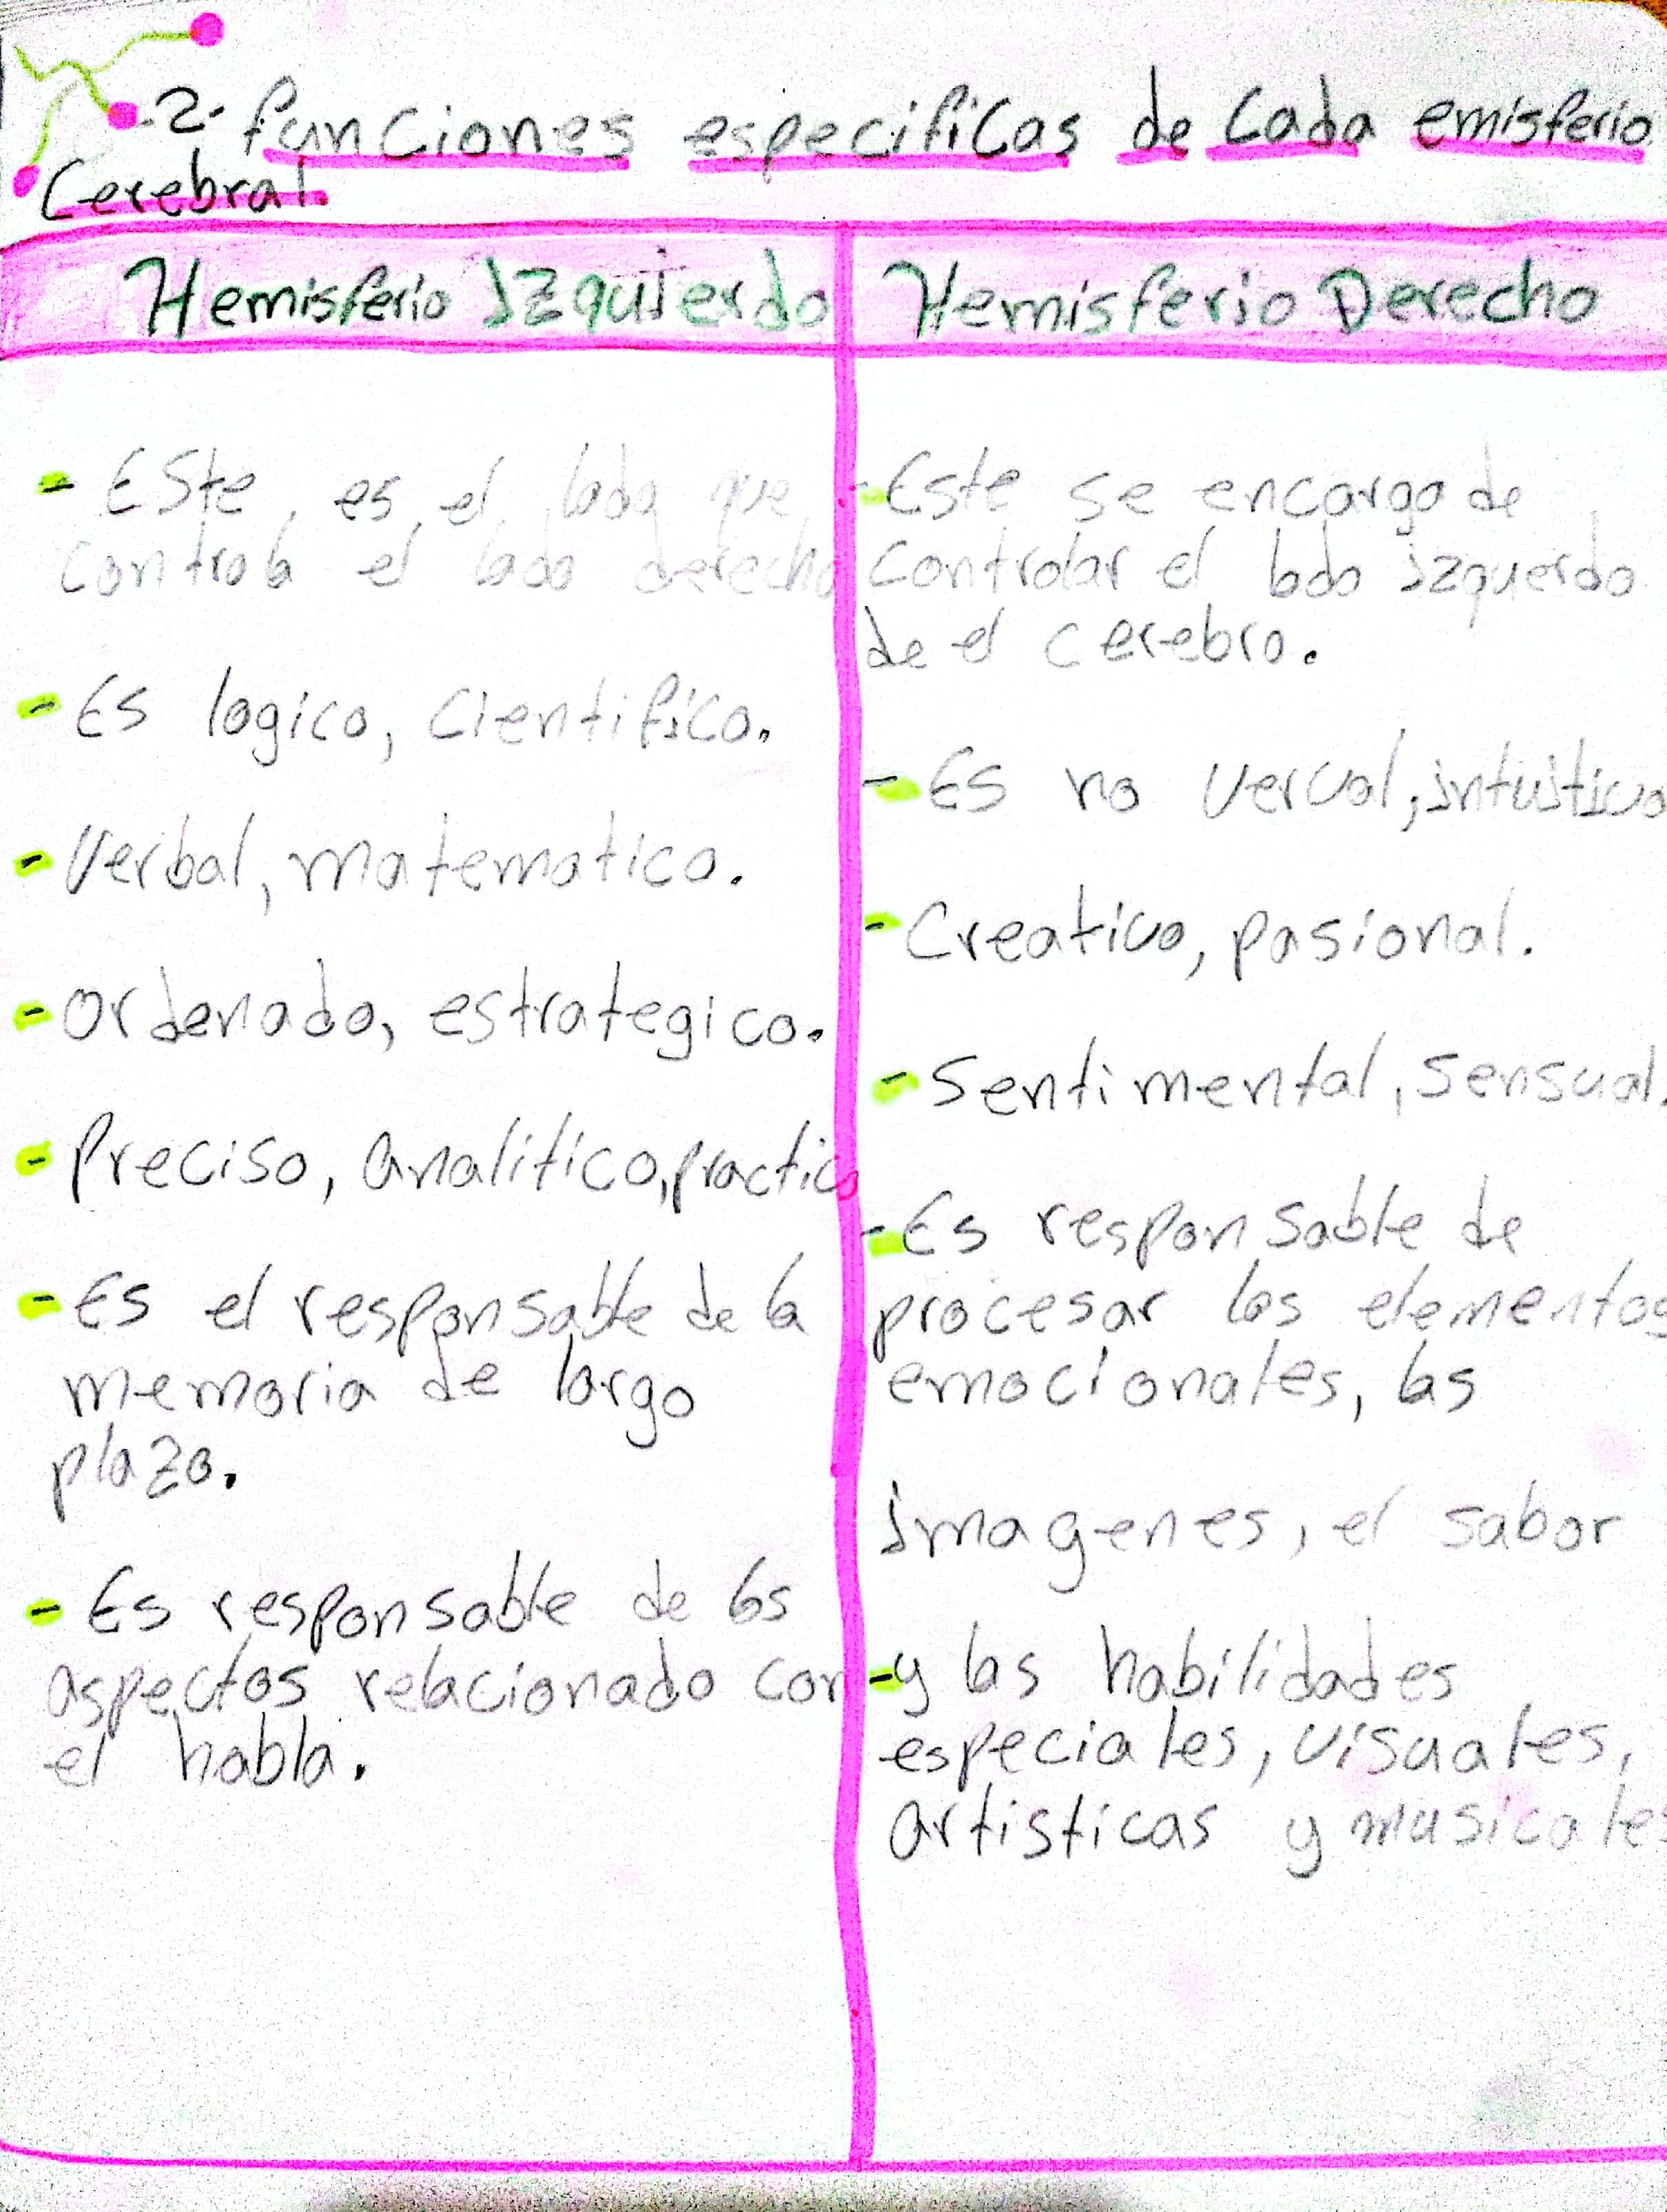 2. funciones especificas de cada emisferio
Cerebral.
Hemisferio Izquierdo
- Este es el lado que
controla el lado derecho
- Es logico, cientifico.
- Verbal, matematico.
- Ordenado, estrategico.
- Preciso, analitico, practico
- Es el responsable de la
memoria de largo
plazo.
- Es responsable de los
aspectos relacionado con
el habla.
Hemisferio Derecho
- Este se encarga de
controlar el lado izquerdo
de el cerebro.
- Es no vercal, intuitivo
- Creativo, pasional.
- Sentimental, sensual.
- Es responsable de
procesar los elementos
emocionales, las
imagenes, el sabor
- y las habilidades
especiales, visuales,
artisticas y musicales